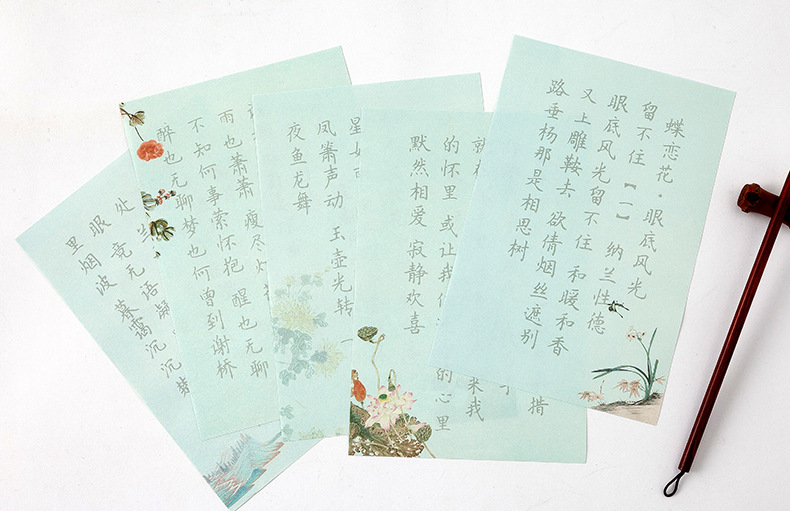 蝶恋花·眼底风光
留不住【一】 纳兰性德
眼底风光留不住 和暖和香
又上雕鞍去 欲倩烟丝遮别
路垂杨那是相思树
措
来我
的怀里 或让我 的心里
默然相爱 寂静欢喜
星如
凤箫声动 玉壶光转 一
夜鱼龙舞
雨也萧萧 瘦尽灯
不知何事萦怀抱 醒也无聊
醉也无聊梦也何曾到谢桥
处
眼 竟无语凝
里烟波 暮霭沉沉楚